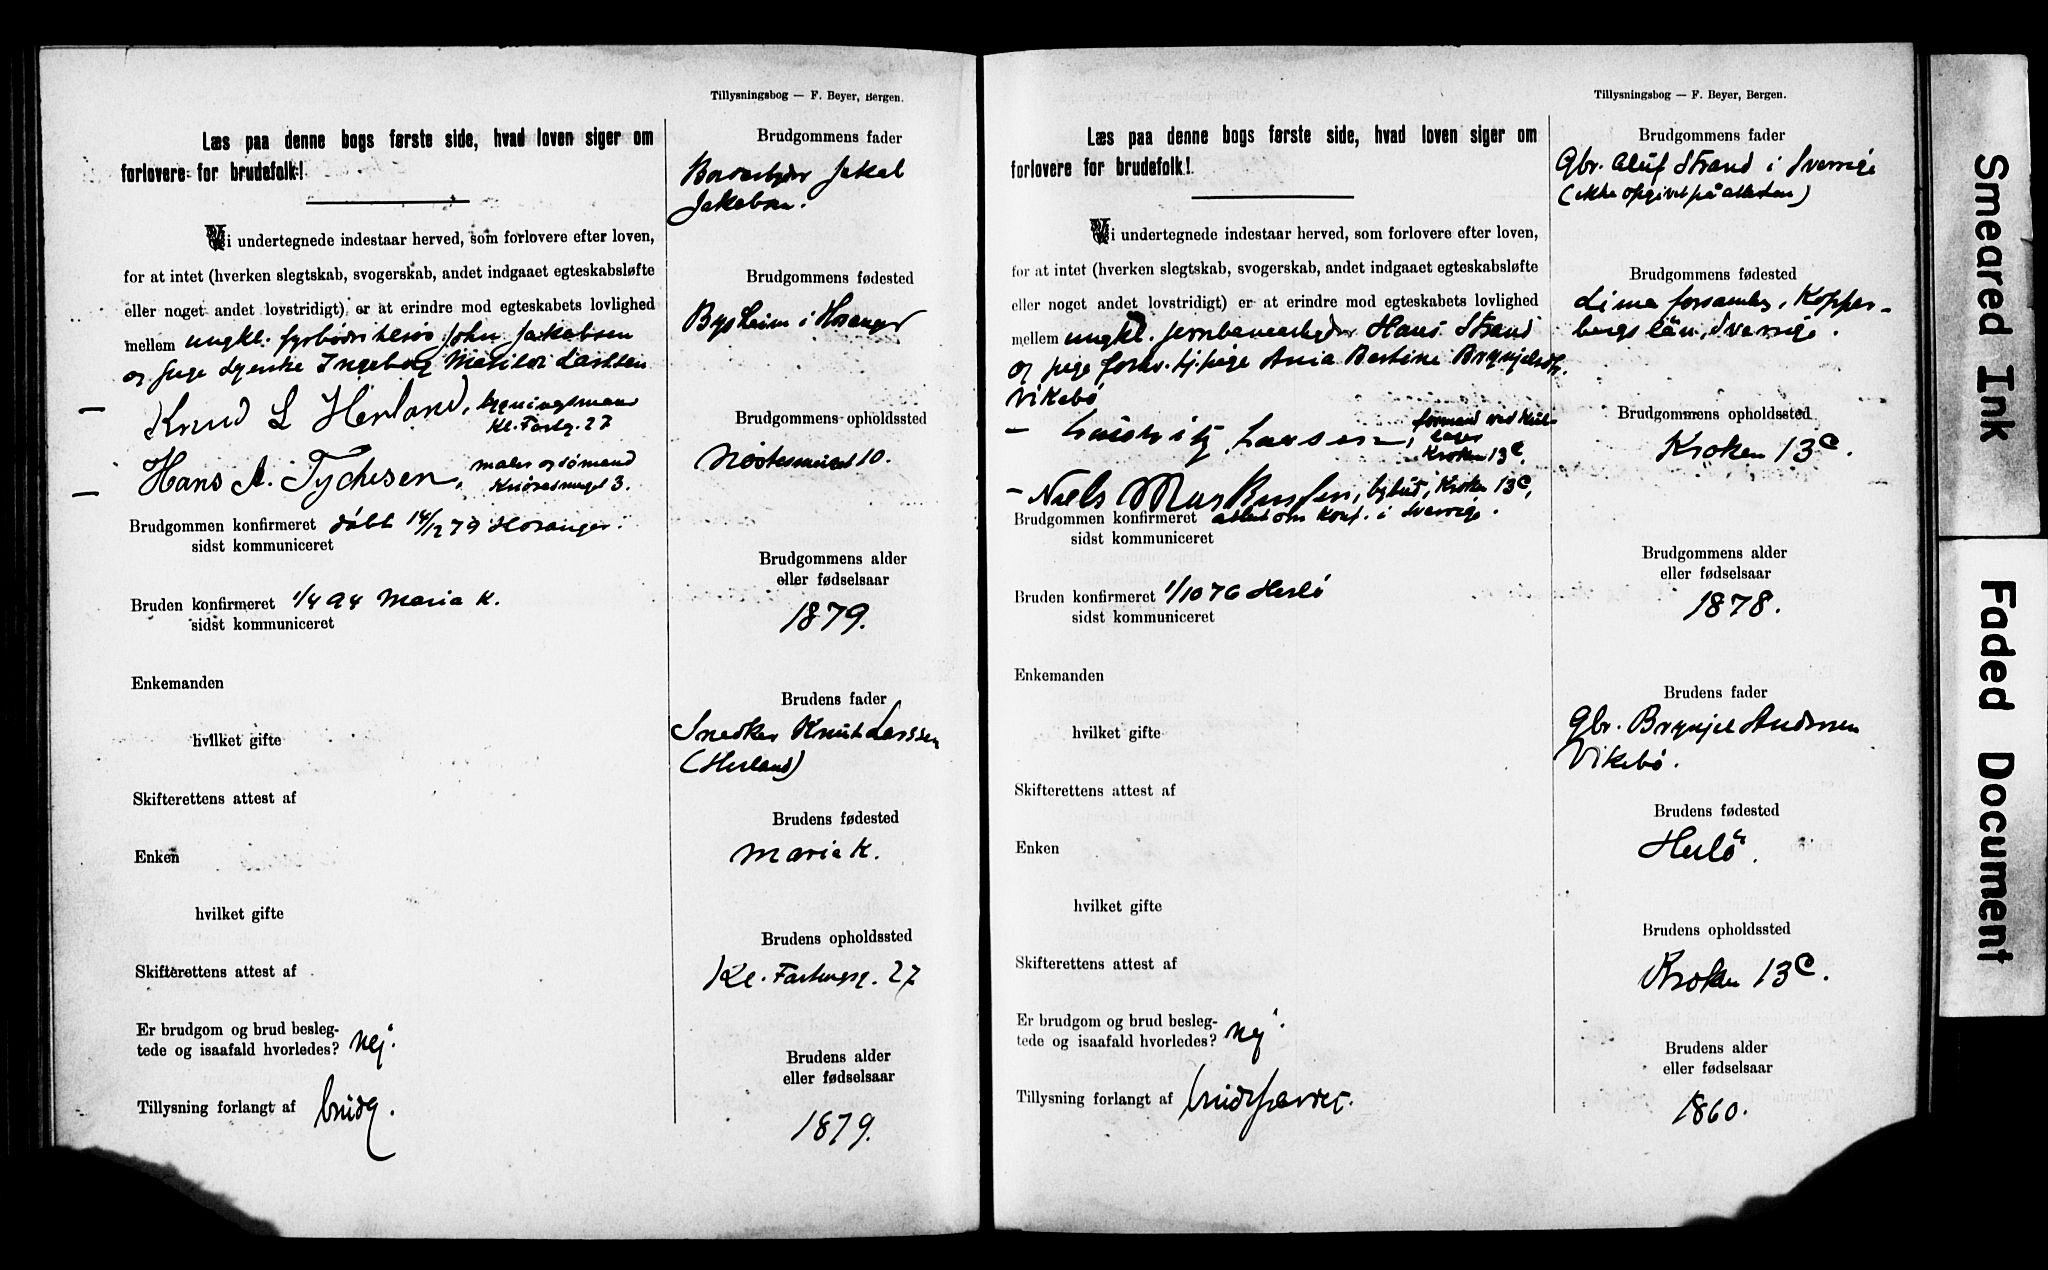 Tillysningsbog — F. Beyer, Bergen.
Læs paa denne bogs første side, hvad loven siger om
forlovere for brudefolk!
Vi undertegnede indestaar herved, som forlovere efter loven,
for at intet (hverken slegtskab, svogerskab, andet indgaaet egteskabsløfte
eller noget andet lovstridigt) er at erindre mod egteskabets lovlighed
mellem ungkl. fyrbøder John Jakobsen
og pige Ingeborg Larssen
Knud L Herland, bygningsmand
Kl. Fortg. 27
Hans A. Tychesen, maler og sømand
3.
Brudgommen konfirmeret døbt 14/12 79 Hosanger.
sidst kommuniceret
Bruden konfirmeret 1/4 94 Maria k.
sidst kommuniceret
Enkemanden
hvilket gifte
Skifterettens attest af
Enken
hvilket gifte
Skifterettens attest af
Er brudgom og brud besleg-
tede og isaafald hvorledes? nej.
Tillysning forlangt af brudg.
Brudgommens fader
Jakob
Jakobsen.
Brudgommens fødested
Bysheim i Hosanger
Brudgommens opholdssted
Nøstesmuget 10.
Brudgommens alder
eller fødselsaar
1879.
Brudens fader
Snedker Knut Larssen
(Herland)
Brudens fødested
Maria k.
Brudens opholdssted
Kl. 27
Brudens alder
eller fødselsaar
1879.
Tillysningsbog — F. Beyer, Bergen.
Læs paa denne bogs første side, hvad loven siger om
forlovere for brudefolk!
Vi undertegnede indestaar herved, som forlovere efter loven,
for at intet (hverken slegtskab, svogerskab, andet indgaaet egteskabsløfte
eller noget andet lovstridigt) er at erindre mod egteskabets lovlighed
mellem ungkl. jernbanearbeider Hans Strand
og pige forhv. tj.pige Bertine
Vikebø
Larsen, formand ved
Kroken 13 C.
Niels bybud, Kroken 13 C,
Brudgommen konfirmeret attest om konf. i Sverrige.
sidst kommuniceret
Bruden konfirmeret 1/10 76 Herlö
sidst kommuniceret
Enkemanden
hvilket gifte
Skifterettens attest af
Enken
hvilket gifte
Skifterettens attest af
Er brudgom og brud besleg-
tede og isaafald hvorledes? nej.
Tillysning forlangt af brudeparret.
Brudgommens fader
Gbr. Oluf Strand i Sverrige
(ikke opgivet på attesten)
Brudgommens fødested
Lima forsamling, Koppar-
bergs län, Sverrige.
Brudgommens opholdssted
Kroken 13 C.
Brudgommens alder
eller fødselsaar
1878.
Brudens fader
Gbr. Brynjel Andersen
Vikebø.
Brudens fødested
Herlö.
Brudens opholdssted
Kroken 13 C.
Brudens alder
eller fødselsaar
1860.
Smeared Ink
Faded Document